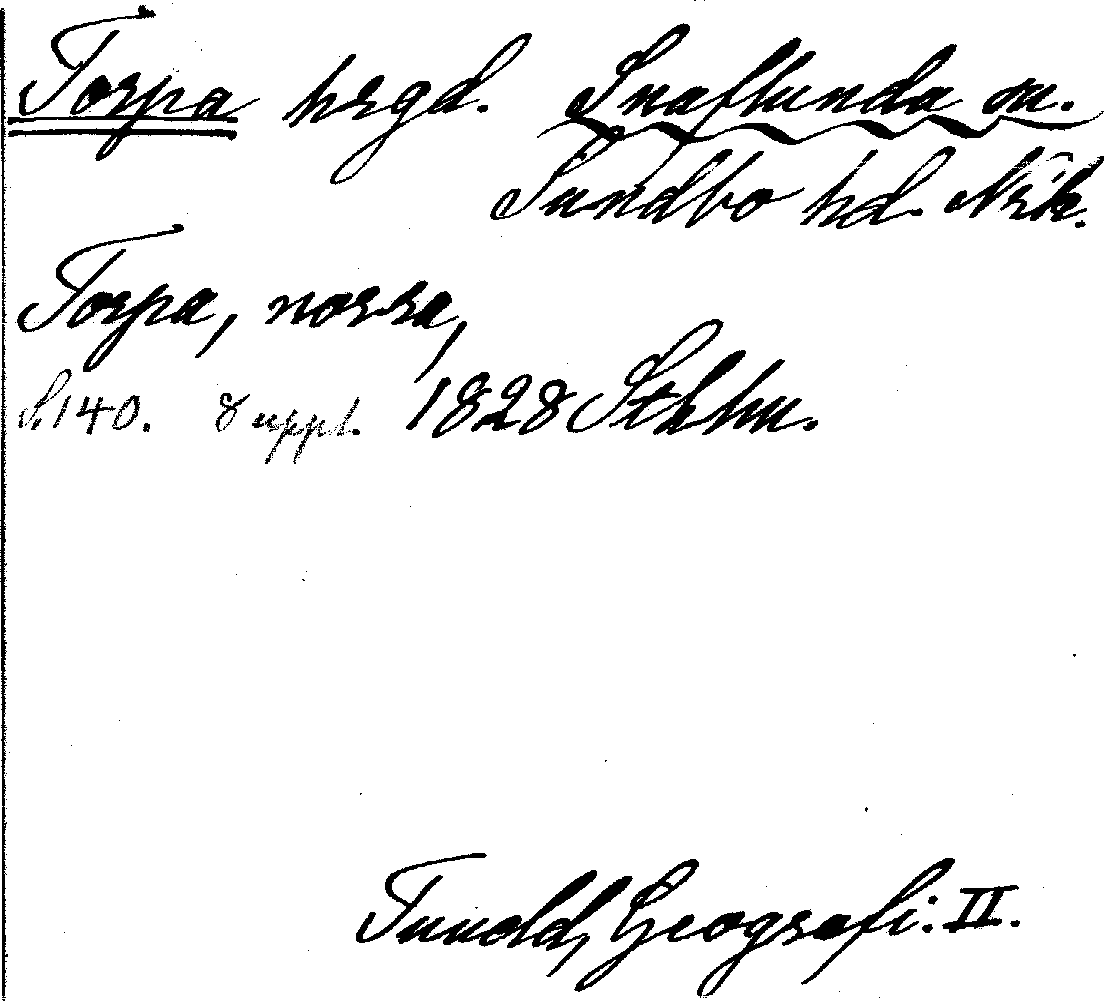 Torpa hrgd. Snaflunda sn.
Sundbo hd. Närk.
Torpa, norra,
S. 140. 8 uppl. 1828 Sthlm.
Tuneld, Geografi. II.